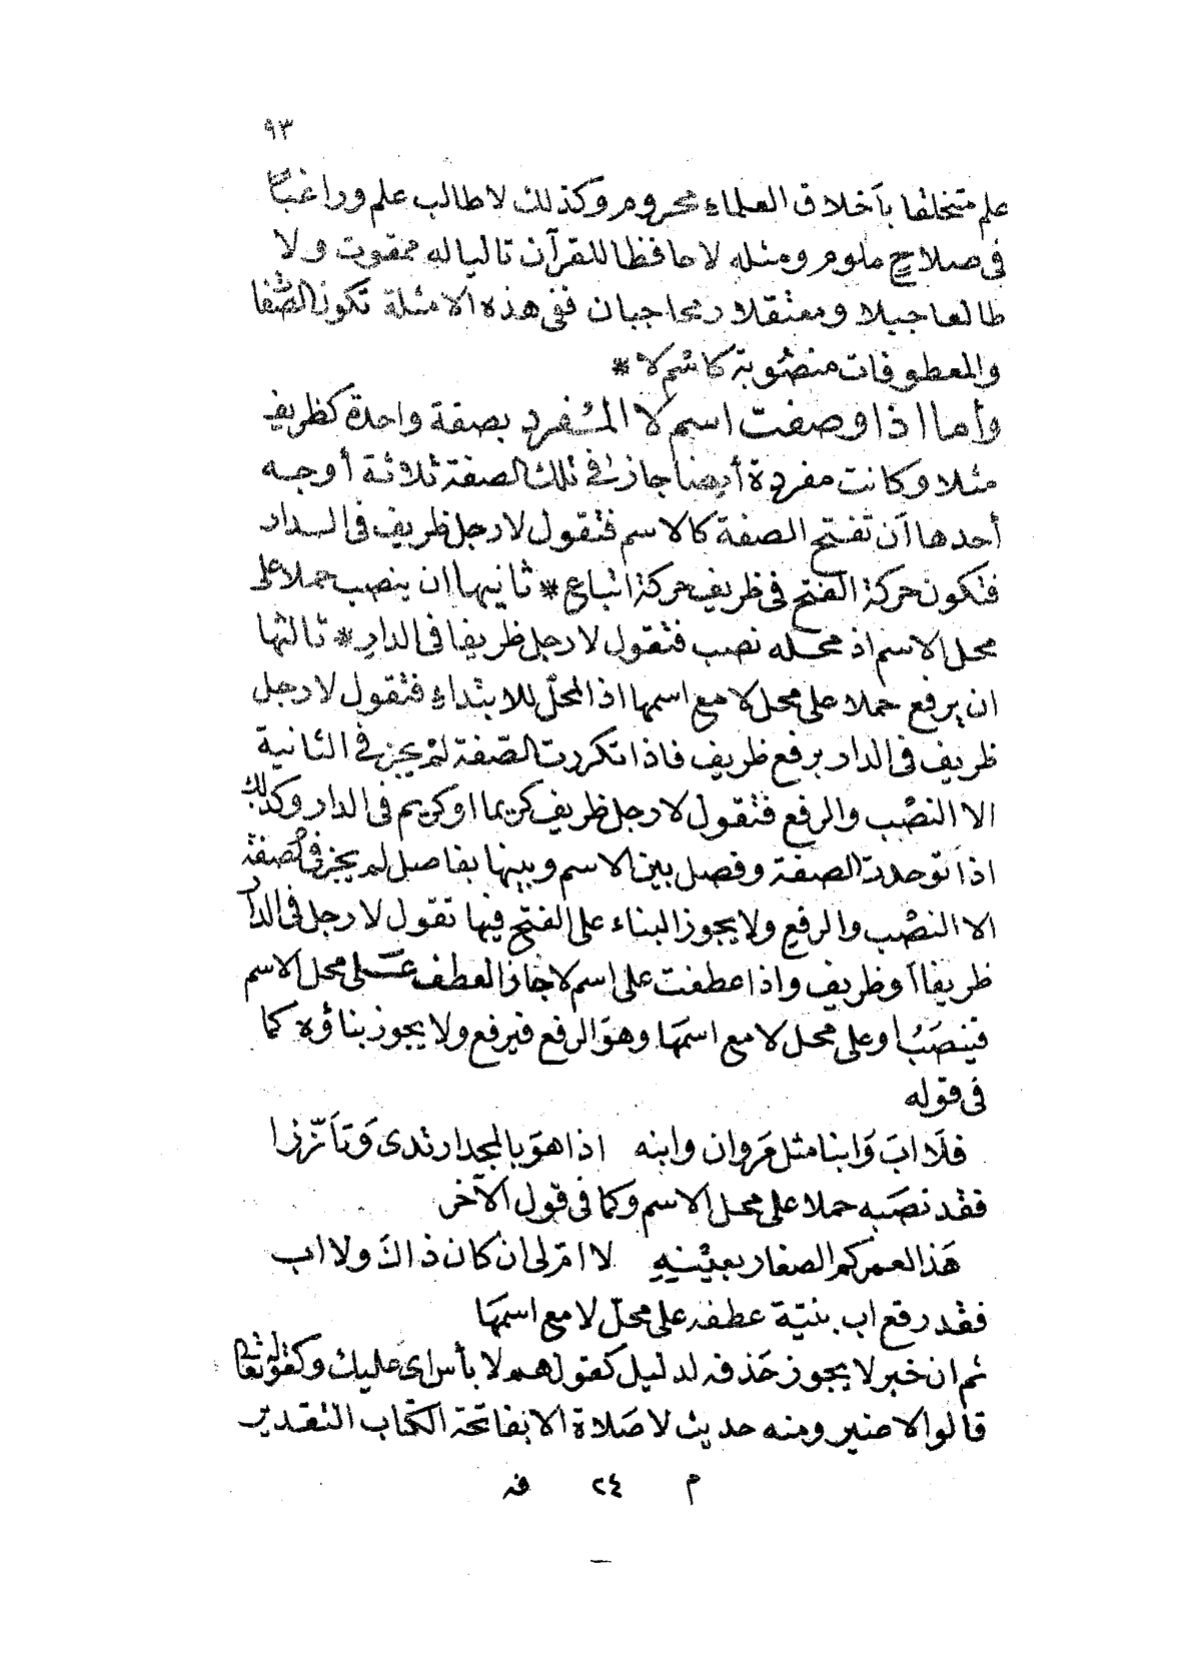 ٩٣
علم متخلقا بأخلاق العلماء محروم وكذلك لا طالب علم وراغبا
فى صلاح ملوم ومثله لا حافظا للقرآن تاليا له ممقوت ولا
طالعا جبلا ومعتقلا رمحا جبان ففى هذه الامثلة تكون الصفا
والمعطوفات منصوبة كاسم لا *
وأما اذا وصفت اسم لا المفرد بصفة واحدة كظريف
مثلا وكانت مفردة أيضا جاز فى تلك الصفة ثلاثة أوجه
أحدها أن تفتح الصفة كالاسم فتقول لا رجل ظريف فى الدار
فتكون حركة الفتح فى ظريف حركة اتباع * ثانيها ان ينصب حملا على
محل الاسم اذ محله نصب فتقول لا رجل ظريفا فى الدار * ثالثها
ان يرفع حملا على محل لا مع اسمها اذ المحلّ للابتداء فتقول لا رجل
ظريف فى الدار برفع ظريف فاذا تكررت الصّفة لم يجز فى الثانية
الا النصْب والرفع فتقول لا رجل ظريف كريما او كريم فى الدار وكذلك
اذا توحدت الصفة وفصل بين الاسم وبينها بفاصل لم يجز فى الصفة
الا النصْب والرفع ولا يجوز البناء على الفتح فيها تقول لا رجل فى الدار
ظريفا أو ظريف واذا عطفت على اسم لا جاز العطف على محل الاسم
فينصَبُ او على محل لا مع اسمَها وهوَ الرفع فيرفع ولا يجوز بناؤه كما
فى قوله
فلَا ابَ وَابنا مثل مَروان وابنه اذا هوَ بالمجد ارتدى وَتأَزّرا
فقد نصَبه حملا على محل الاسم وكما فى قول الآخر
هَذا لعمركم الصغار بعيْنهِ لا امّ لى ان كان ذاكَ ولا اب
فقد رفع اب بنيّة عطفه على محلّ لا مع اسمهَا
ثم ان خبر لا يجوز حَذفه لدليل كقولهم لا بأس اى عليك وكقوله تعالى
قالوا لا ضير ومنه حديث لا صَلاة الا بفاتحة الكتاب التقدير
م ٢٤ فه